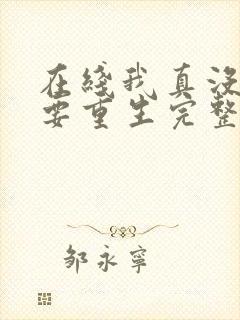 在綫我真没
要重生完整
邹永寧